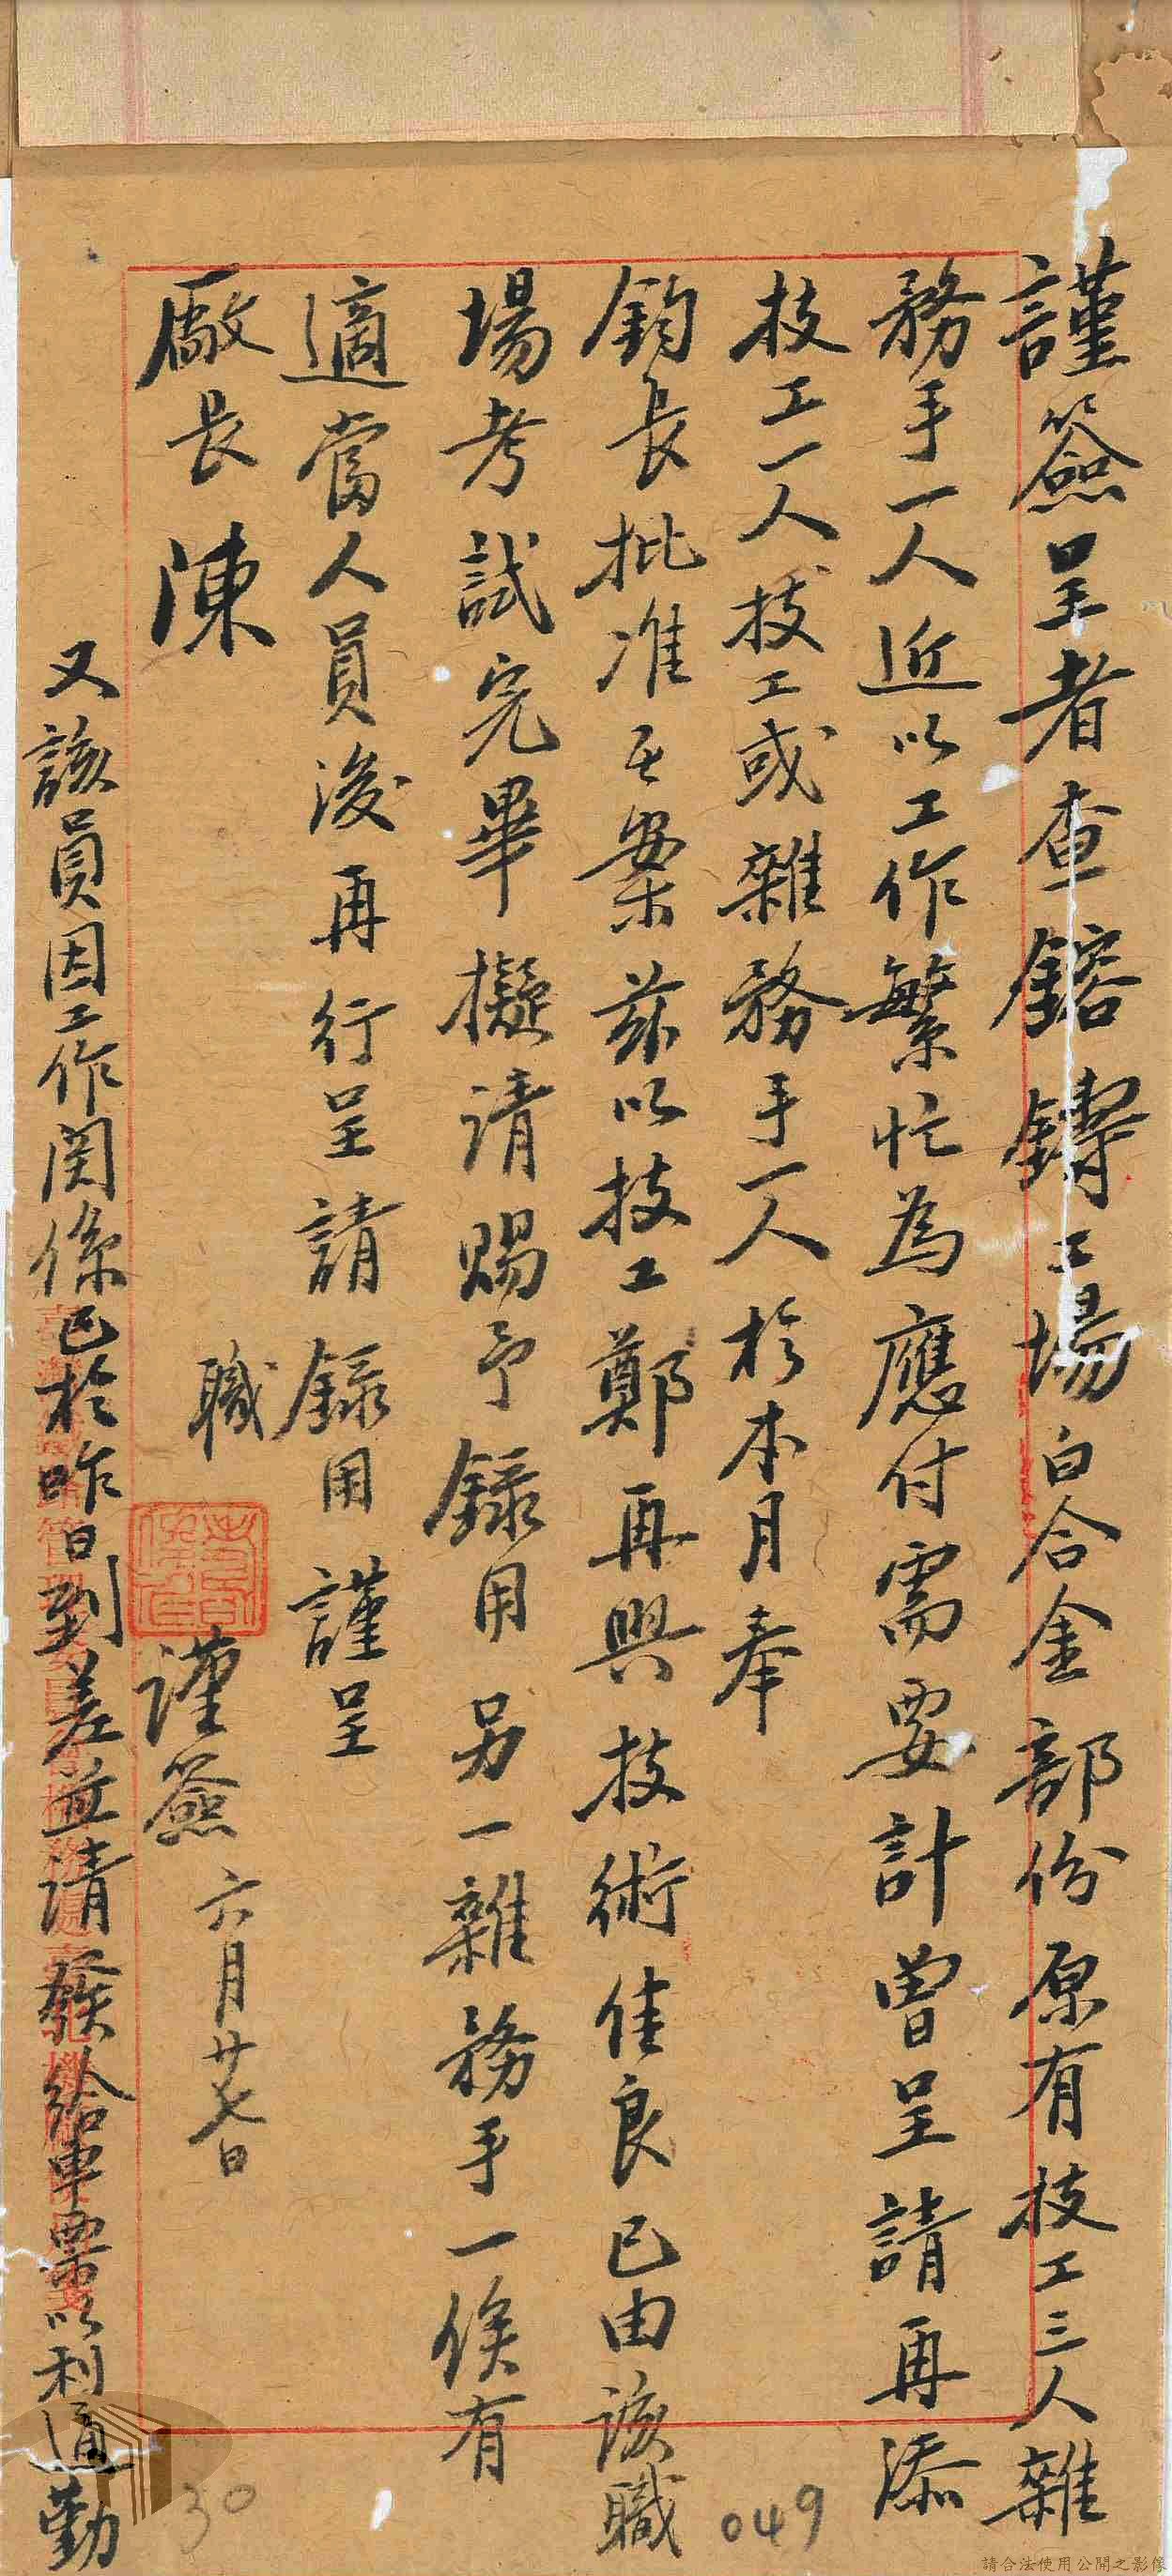 謹簽呈者查鎔鑄工場白合金部份原有技工三人雜
務手一人近以工作繁忙為應付需要計曾呈請再添
技工一人技工或雜務手一人於本月奉
鈞長批准在案茲以技工鄭再興技術佳良已由該職
場考試完畢擬請賜予錄用另一雜務手一俟有
適當人員後再行呈請錄用謹呈
廠長 陳
職
謹簽 六月廿七日
又該員因工作関係已於昨日到差並請發給車票以利通勤
049
30
請合法使用公開之影像